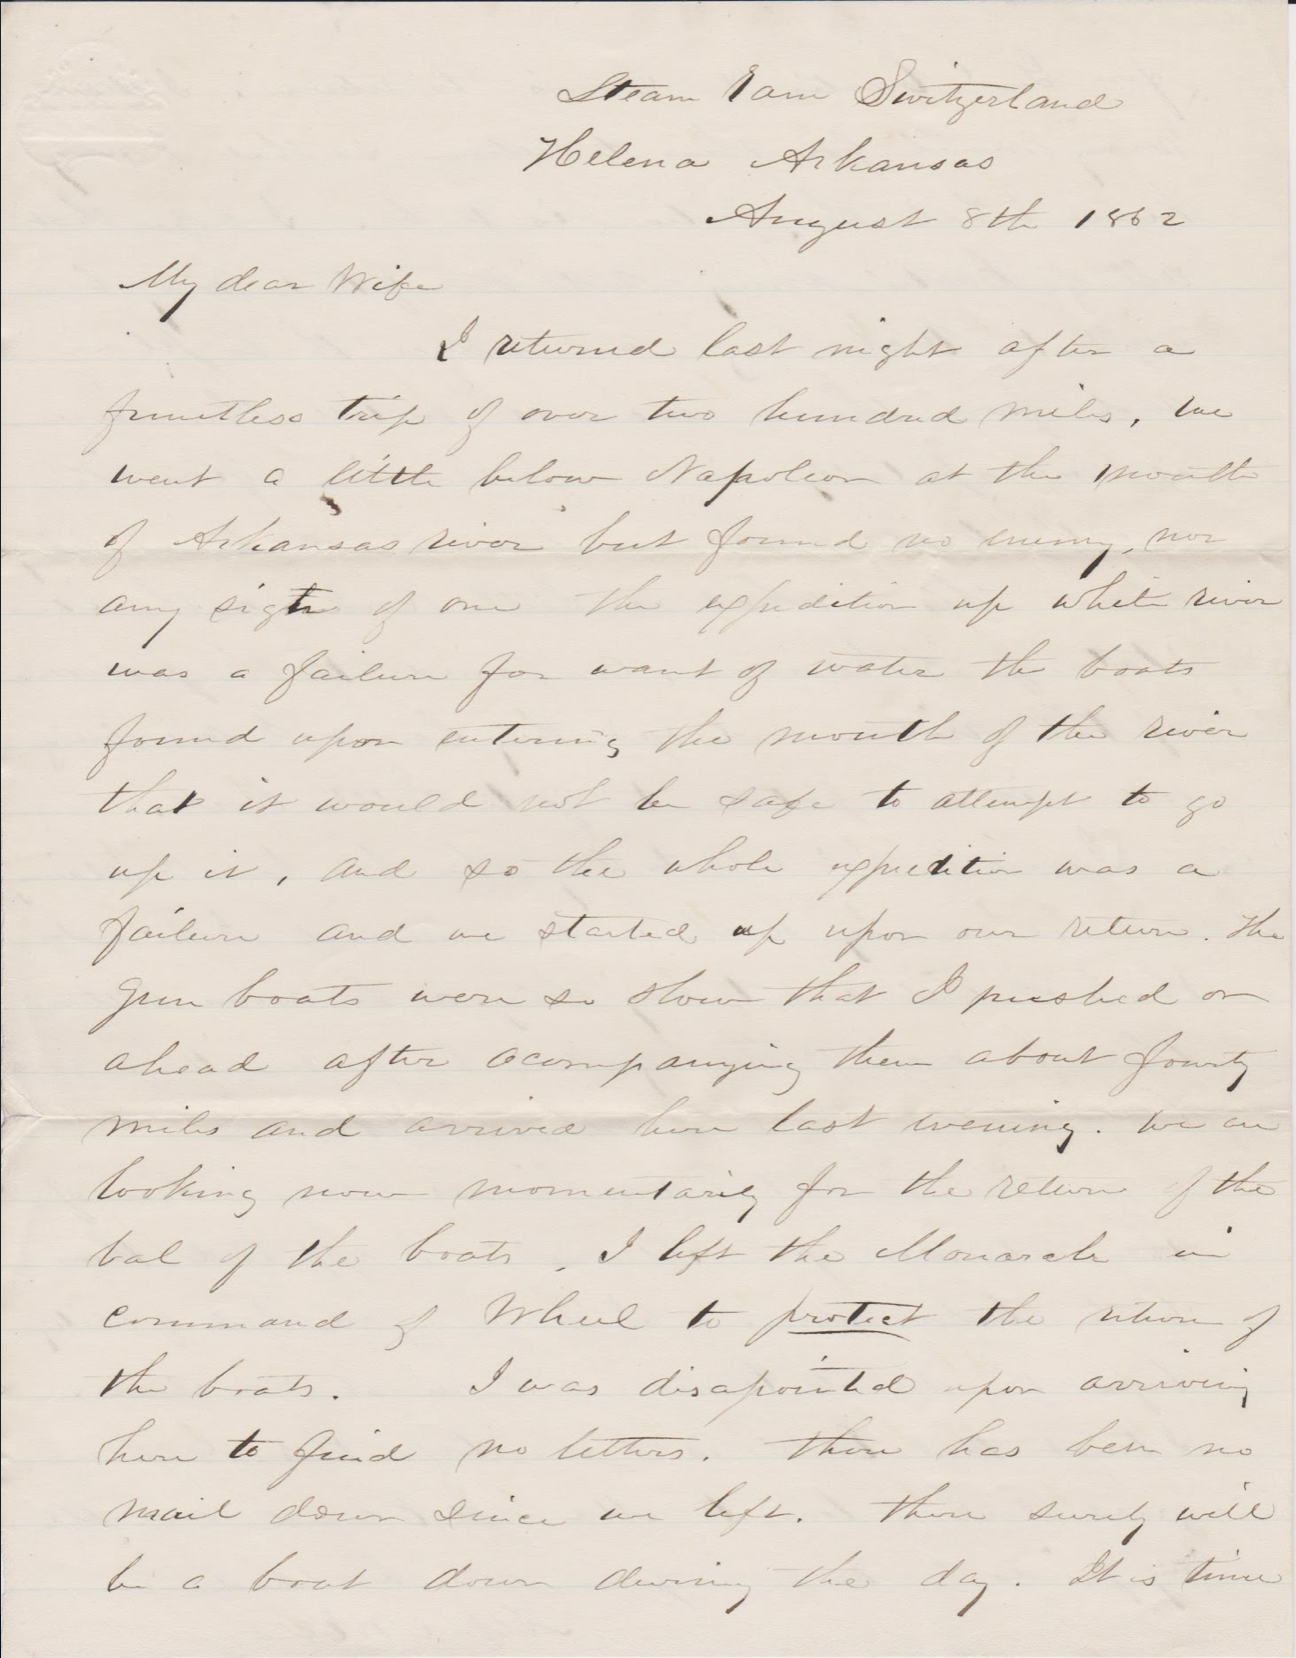 Steam Ram Switzerland
Helena Arkansas
August 8th 1862
My dear Wife
I returned last night after a
fruitless trip of over two hundred miles, we
went a little below Napoleon at the mouth
of Arkansas river but found no enemy, nor
any sight of one the expedition up white river
was a failure for want of water the boats
found upon entering the mouth of the river
that it would not be safe to attempt to go
up it, and so the whole expedition was a
failure and we started up upon our return. The
Gun boats were so slow that I pushed on
ahead after acompanying them about fourty
miles and arrived here last evening. We are
looking now momentarily for the return of the
bal of the boats, I left the Monarch in
command of Wheel to protect the return of
the boats. I was disapointed upon arriving
here to find no letters. There has been no
mail down since we left. There surely will
be a boat down during the day. It is time